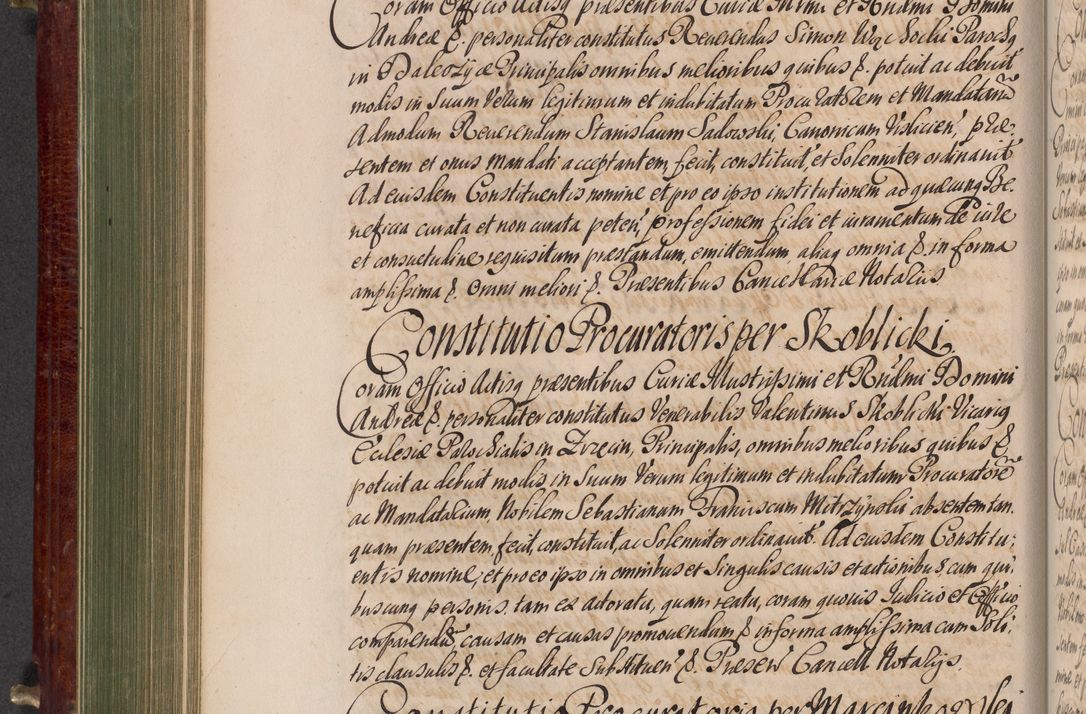 Coram Officio Actisq præsentibus Curiæ Illrmi et Rndmi Domini
Andreæ &. personaliter constitutus Reuerendus Simon Parochq
in Daleszyce Principalis omnibus melioribus quibus &. potuit ac debuit
modis in Suum Verum legitimum et indubitatum Procuratorem et Mandatariũ
Admodum Reuerendum Stanislaum Sadowski, Canonicum Vislicien', præ-
sentem et onus mandati acceptantem, fecit, constituit, et Solenniter ordinauit
Ad eiusdem Constituentis nomine et pro eo ipso institutionem ad quæcunq Be-
neficia curata et non curata peten', professionem fidei et iuramentum de iure
et consuetudine requisitum præstandum, emittendum, aliaq omnia & in forma
amplissima &. Omni meliori &. Præsentibus Cancellariæ Notariis
Constitutio Procuratoris per Skoblicki
Coram Officio Actisq præsentibus Curiæ Illustrissimi et Rndmi Domini
Andreæ &. personaliter constitutus Venerabilis Valentinus Skoblicki Vicariq
Ecclesiæ Parochialis in Principalis, omnibus melioribus quibus &
potuit ac debuit modis in Suum Verum legitimum et indubitatum Procuratorẽ
ac Mandatarium, Nobilem Sebastianum Franciscum absentem tan-
quam præsentem, fecit, constituit, ac Solenniter ordinauit. Ad eiusdem Constitu-
entis nomine, et pro eo ipso in omnibus et Singulis causis et actionibus, cum qui-
buscunq personis, tam ex actoratu, quam reatu, coram quouis Iudicio et Officio
comparendũ causam et causas promouendum & in forma amplissima cum Soli-
tis clausulis &. et facultate Substituen' &. Presen' Cancell Notarijs.
Constitutio Procuratoris per